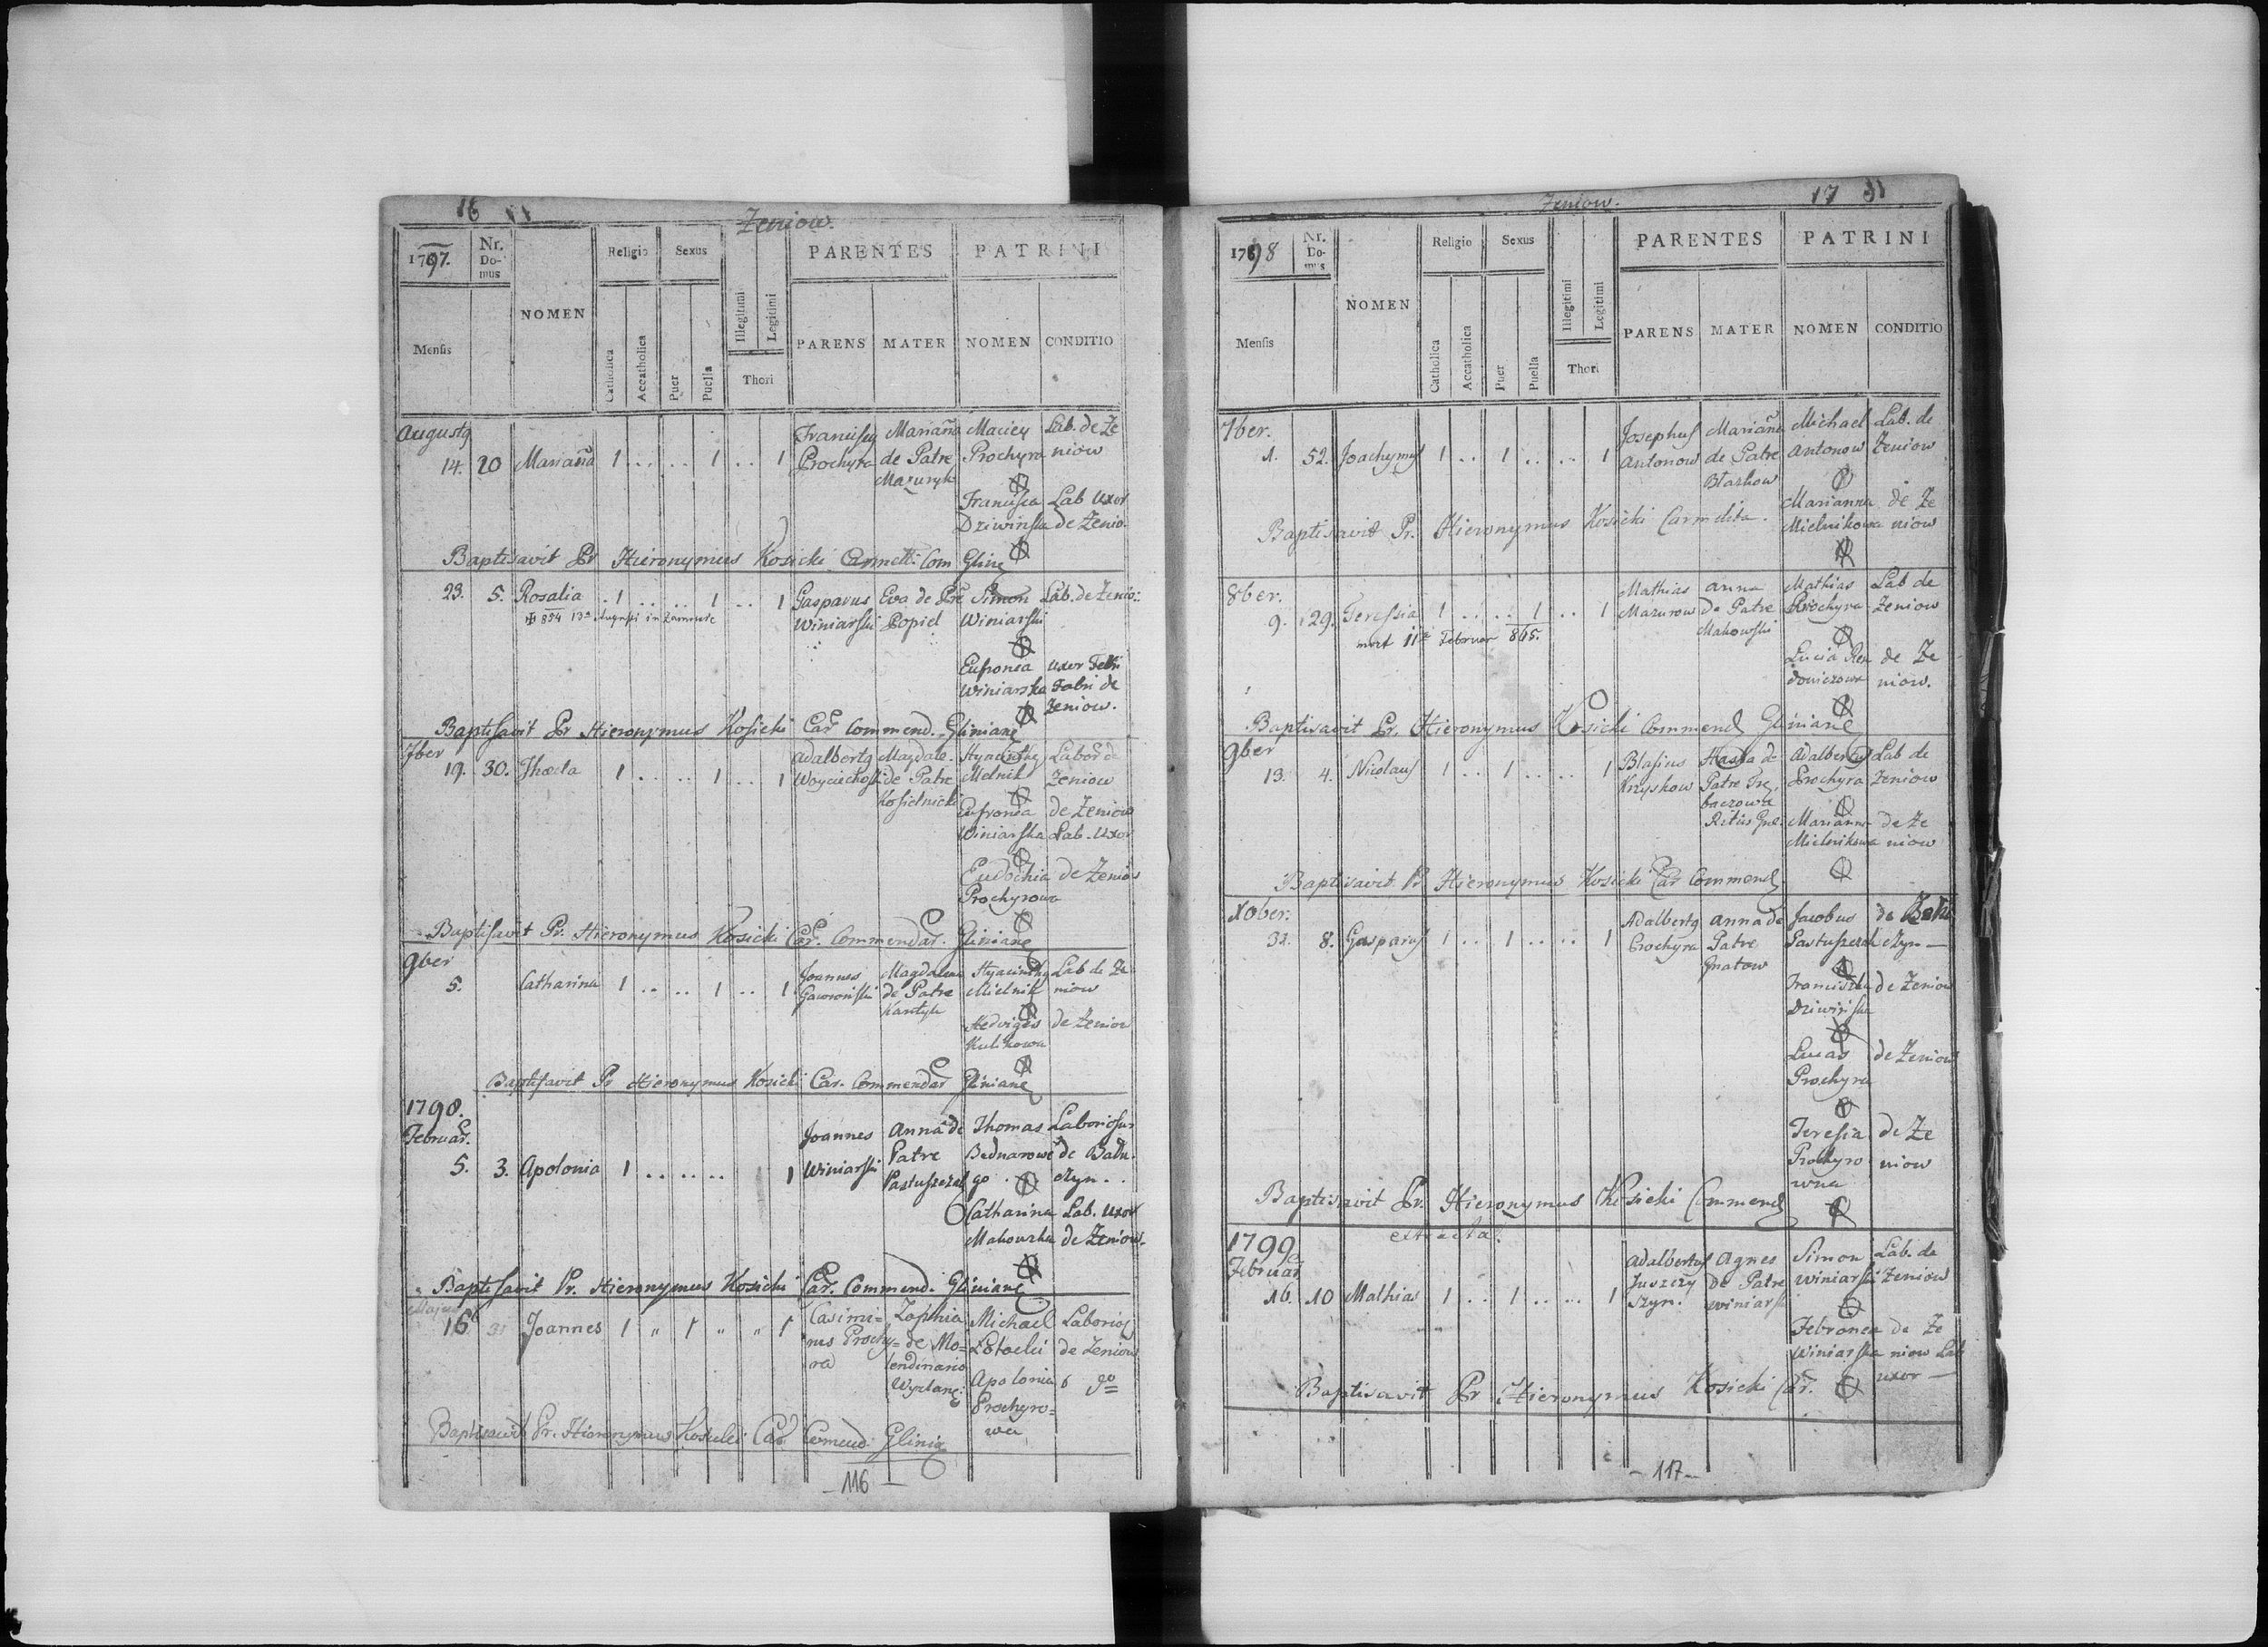 16
Zeniow.
1797.
Nr. Domus
NOMEN
Religio
Sexus
PARENTES
PATRINI
Mensis
Catholica
Accatholica
Puer
Puella
Illegitimi
Legitimi
Thori
PARENS
MATER
NOMEN
CONDITIO
Augustg
14. 20 Marianna 1 .. .. 1 .. 1
Prochyra
Marianna de Patre Mazuryk
Maciey Prochyra
Lab. de Zeniow
Francisca Dziwinska
Lab Uxor de Zenio.
Baptisavit Pr Hieronymus Kosicki Com Gline
23. 5. Rosalia 1 .. .. 1 .. 1
✠ 854 13a Augusti in
Gasparus Winiarski
Eva de Pre Popiel
Simon Winiarski
Lab. de Zenio:
Eufronea Winiarska
uxor Fabri de Zeniow.
Baptisavit Pr Hieronymus Kosicki Car Commend. Gliniane
7ber
19. 30. Thecla 1 .. .. 1 .. 1
Adalbertg
Magdale. de Patre Kosielnicki
Hyacinthg Melnik
Labor de Zeniow
Eufronea Winiarska
de Zeniow Lab. Uxor
Eudochia Prochyrowa
de Zeniow
Baptisavit Pr. Hieronymus Kosicki Car. Commendar. Gliniane
9ber
5. Catharina 1 .. .. 1 .. 1
Joannes Gaworinski
Magdalena de Patre
Hyacinthg Mielnik
Lab de Zeniow
Hedvigis Kulikowa
de Zeniow
Baptisavit Pr Hieronymus Kosicki Car. Commendar Gliniane
1798.
Februar.
5. 3. Apolonia 1 .. .. .. 1
Joannes Winiarski
Anna de Patre Pastuszczak
Thomas Bednarowego
Laboriosus de
Catharina Makowska
Lab. Uxor de Zeniow.
Baptisavit Pr. Hieronymus Kosicki Car. Commend. Gliniane
Majus
16 31 Joannes 1 " 1 " " 1
Casimi=
rus Prochy=
ra
Zophia
de Mo=
lendinario
Michael
Laborios
de Zeniow
Apolonia
Prochyro=
wa
Baptisavit Pr. Hieronymus Kosicki Car Comend. Glinia
-116-
Zeniow.
17
1798
Nr. Domus
NOMEN
Religio
Sexus
PARENTES
PATRINI
Mensis
Catholica
Accatholica
Puer
Puella
Illegitimi
Legitimi
Thori
PARENS
MATER
NOMEN
CONDITIO
7ber.
1. 52. Joachymus 1 .. 1 .. .. 1
Josephus Antonow
Marianna de Patre Blazkow
Michael Antonow
Lab. de Zeniow
Marianna Mielnikowa
de Zeniow
Baptisavit Pr. Hieronymus Kosicki Carmelita.
8ber.
9. 29. Teressia 1 .. .. 1 .. 1
mort 11a Februar 865.
Mathias Mazurow
Anna de Patre Makowski
Mathias Prochyra
Lab de Zeniow
Lucia
de Zeniow.
Baptisavit Pr. Hieronymus Kosicki Commend Gliniane
9ber
13. 4. Nicolaus 1 .. 1 .. .. 1
Blasius Krzyskow
Haska de Patre
Adalbertg Prochyra
Lab de Zeniow
Marianna Mielnikowa
de Zeniow
Baptisavit Pr Hieronymus Kosicki Car Commend
Xober.
8. Gasparus 1 .. 1 .. .. 1
Adalbertg Prochyra
Anna de Patre Gnatow
Jacobus Pastuszczak
de
Franciska Dziwinska
de Zeniow
Lucas Prochyra
de Zeniow
Teresia Prochyrowna
de Zeniow
Baptisavit Pr. Hieronymus Kosicki Commend
1799
Februar
16. 10 Mathias 1 .. 1 .. .. 1
Adalbertus
Agnes de Patre Winiarski
Simon Winiarski
Lab. de Zeniow
Febronea Winiarska
de Zeniow Lab uxor
Baptisavit Pr Hieronymus Kosicki Car.
-117-